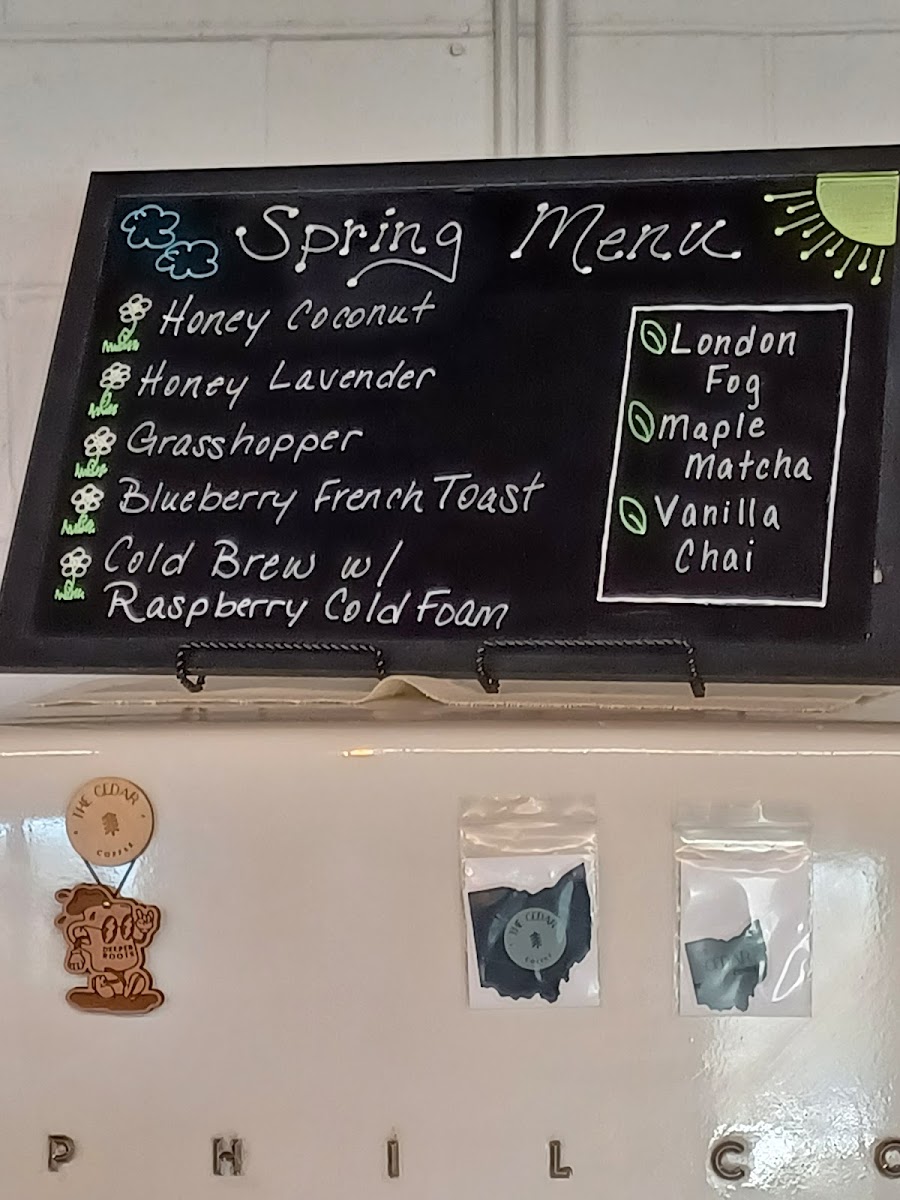 Spring Menu
Honey Coconut
Honey Lavender
Grasshopper
Blueberry French Toast
Cold Brew w/
Raspberry Cold Foam
London
Fog
Maple
Matcha
Vanilla
Chai
THE CEDAR
COFFEE
DEEPER
ROOTS
THE CEDAR
COFFEE
CEDAR
PHILCO